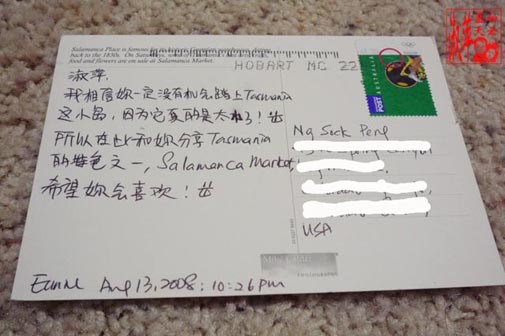 Salamanca Place is famous
back to the 1830s. On Saturdays,
food and flowers are on sale at Salamanca Market.
HOBART MC 22
AUSTRALIA
POST
淑萍,
我相信妳一定没有机会踏上Tasmania
这小岛,因为它真的是太 了!
所以在此和妳分享Tasmania
的特色之一, Salamanca Market,
希望妳会喜欢!
Ng Suck Peng
USA
Aug 13, 2008; 10:26pm